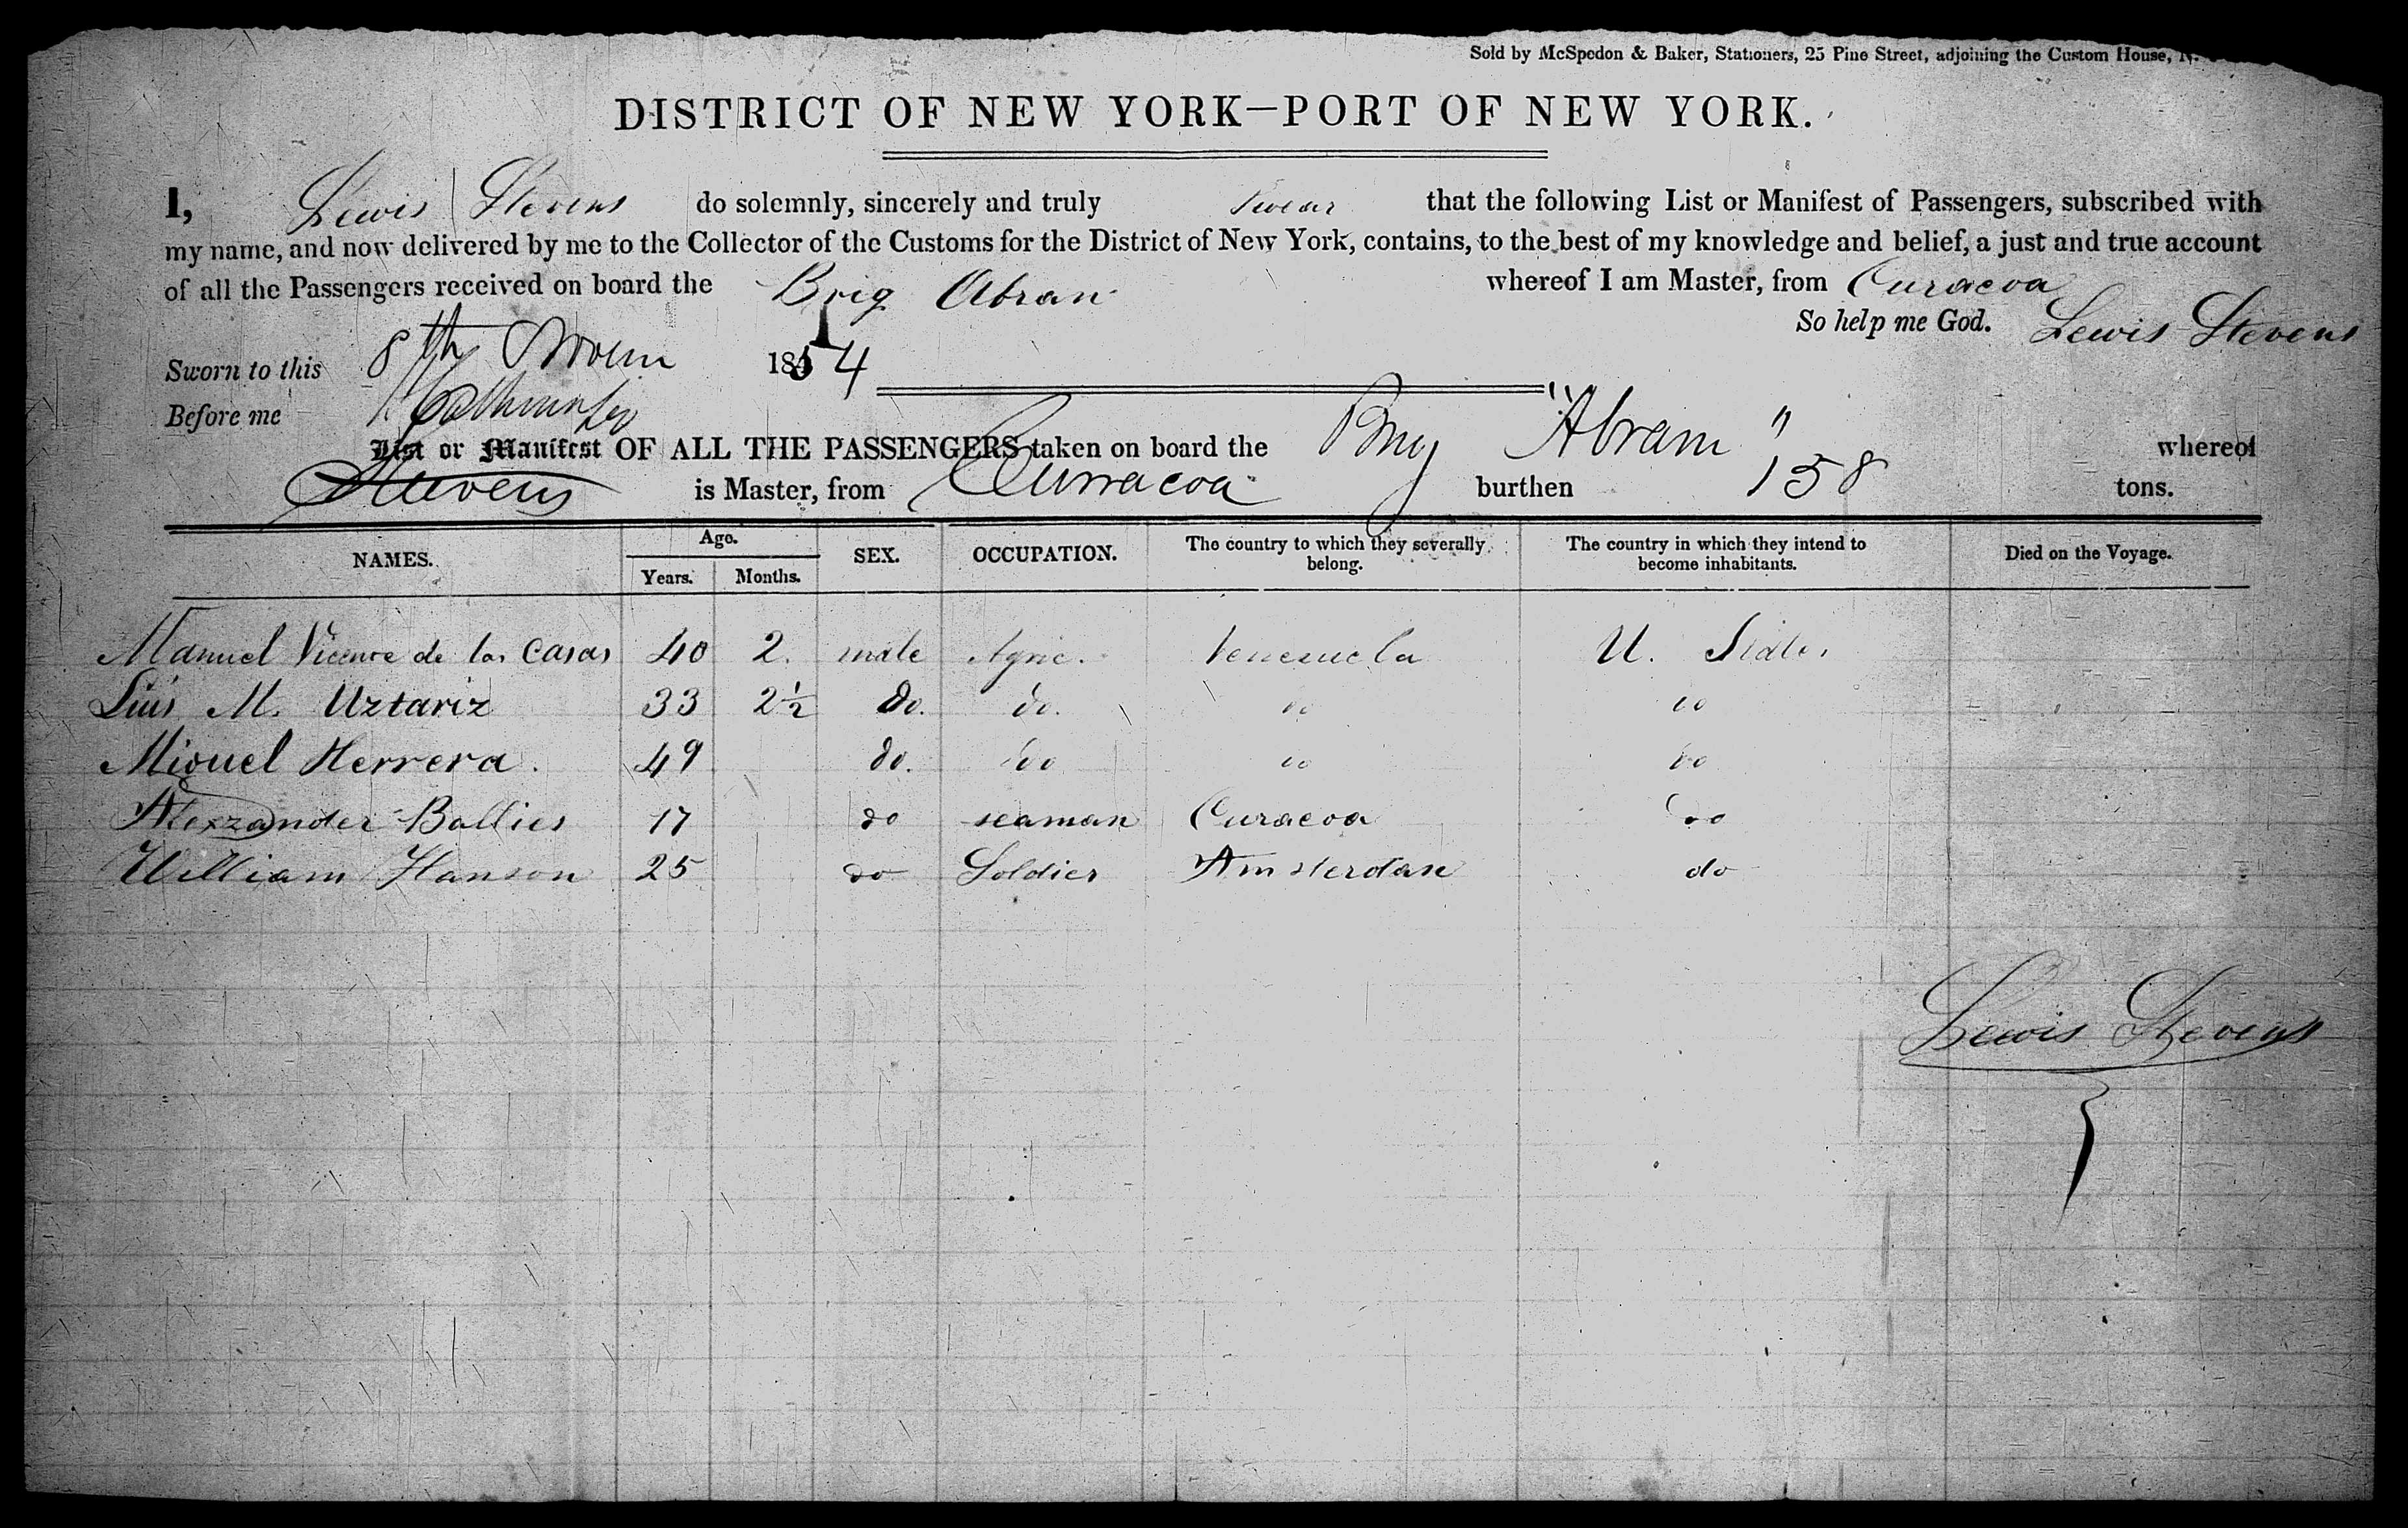 Sold by McSpedon & Baker, Stationers, 25 Pine Street, adjoining the Custom House, N.
DISTRICT OF NEW YORK—PORT OF NEW YORK.
I, Lewis Stevens do solemnly, sincerely and truly swear that the following List or Manifest of Passengers, subscribed with
my name, and now delivered by me to the Collector of the Customs for the District of New York, contains, to the best of my knowledge and belief, a just and true account
of all the Passengers received on board the Brig Abram whereof I am Master, from Curacoa
So help me God. Lewis Stevens
Sworn to this 8th 1854
Before me
List or Manifest OF ALL THE PASSENGERS taken on board the Brig "Abram" whereof
Stevens is Master, from Curracoa burthen 158 tons.
NAMES. Age. Years. Months. SEX. OCCUPATION. The country to which they severally belong. The country in which they intend to become inhabitants. Died on the Voyage.
Manuel Vicente de las Casas 40 2. male Agric. Venezuela U. States
Luis M. Uztariz 33 2½ do. do. do do
Miguel Herrera. 49 do. do do do
Alexzander Ballies 17 do seaman Curacoa do
William Hanson 25 do Soldier Amsterdam do
Lewis Stevens